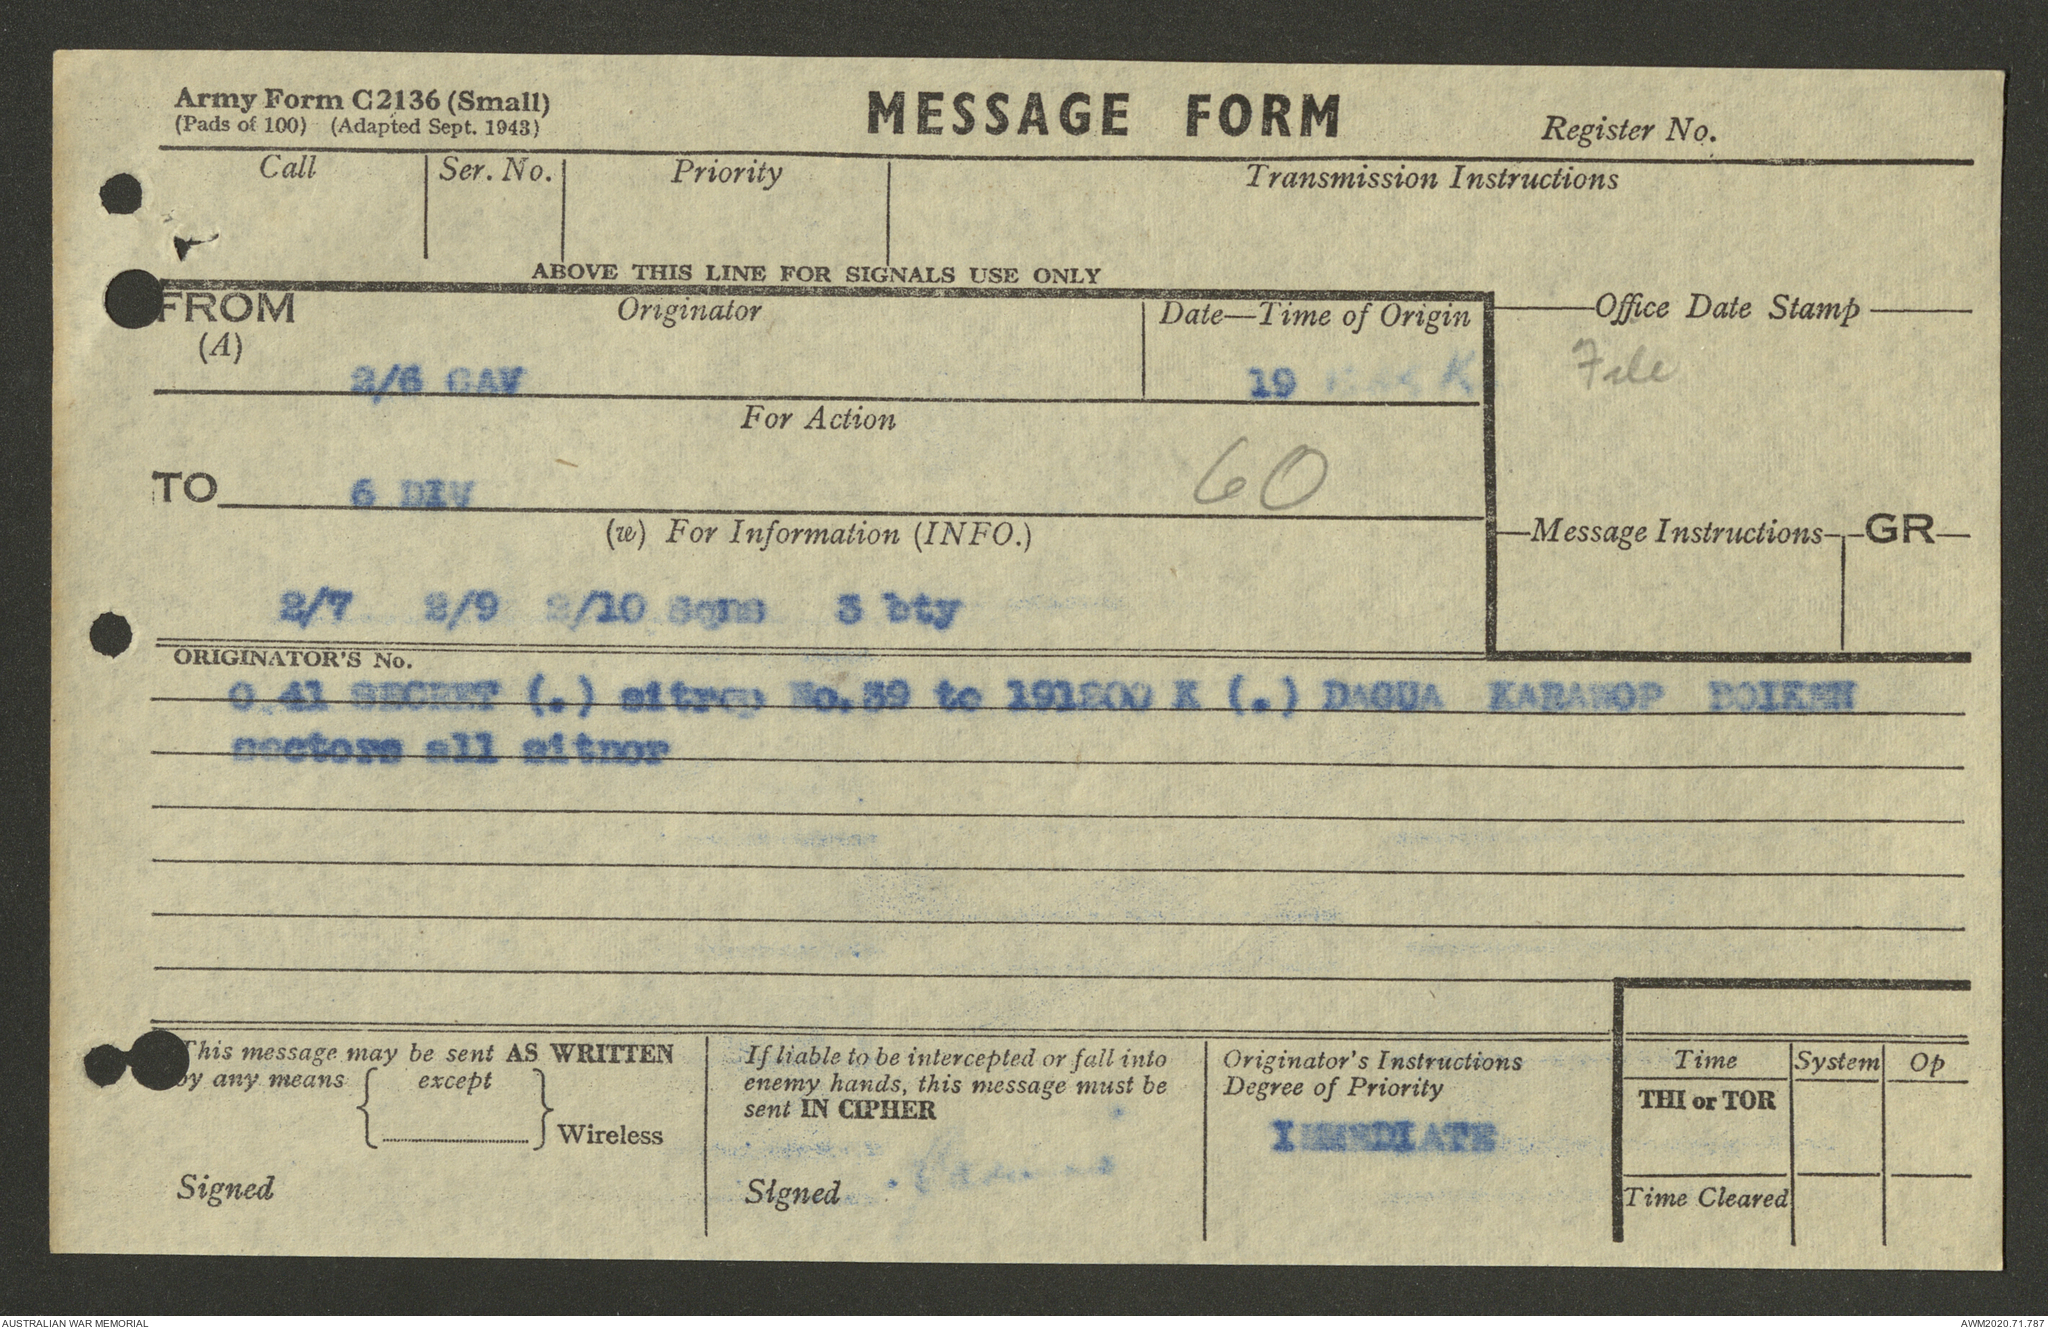 Army Form C2136 (Small)
(Pads of 100) (Adapted Sept. 1943)
MESSAGE FORM
Register No.
Call
Ser. No.
Priority
Transmission Instructions
ABOVE THIS LINE FOR SIGNALS USE ONLY
FROM
(A)
Originator
Date—Time of Origin
Office Date Stamp
2/6 CAV
19 K
File
For Action
TO
6 DIV
60
(w) For Information (INFO.)
Message Instructions
GR
2/7 2/9 2/10 Sqns 3 bty
ORIGINATOR'S No.
O.41 SECRET (.) sitrep No.39 to 191200 K (.) DAGUA KARAWOP BOIKEN
sectors all sitnor
This message may be sent AS WRITTEN
by any means { except }
Wireless
Signed
If liable to be intercepted or fall into
enemy hands, this message must be
sent IN CIPHER
Signed
Originator's Instructions
Degree of Priority
IMMEDIATE
Time
System
Op
THI or TOR
Time Cleared
AUSTRALIAN WAR MEMORIAL
AWM2020.71.787